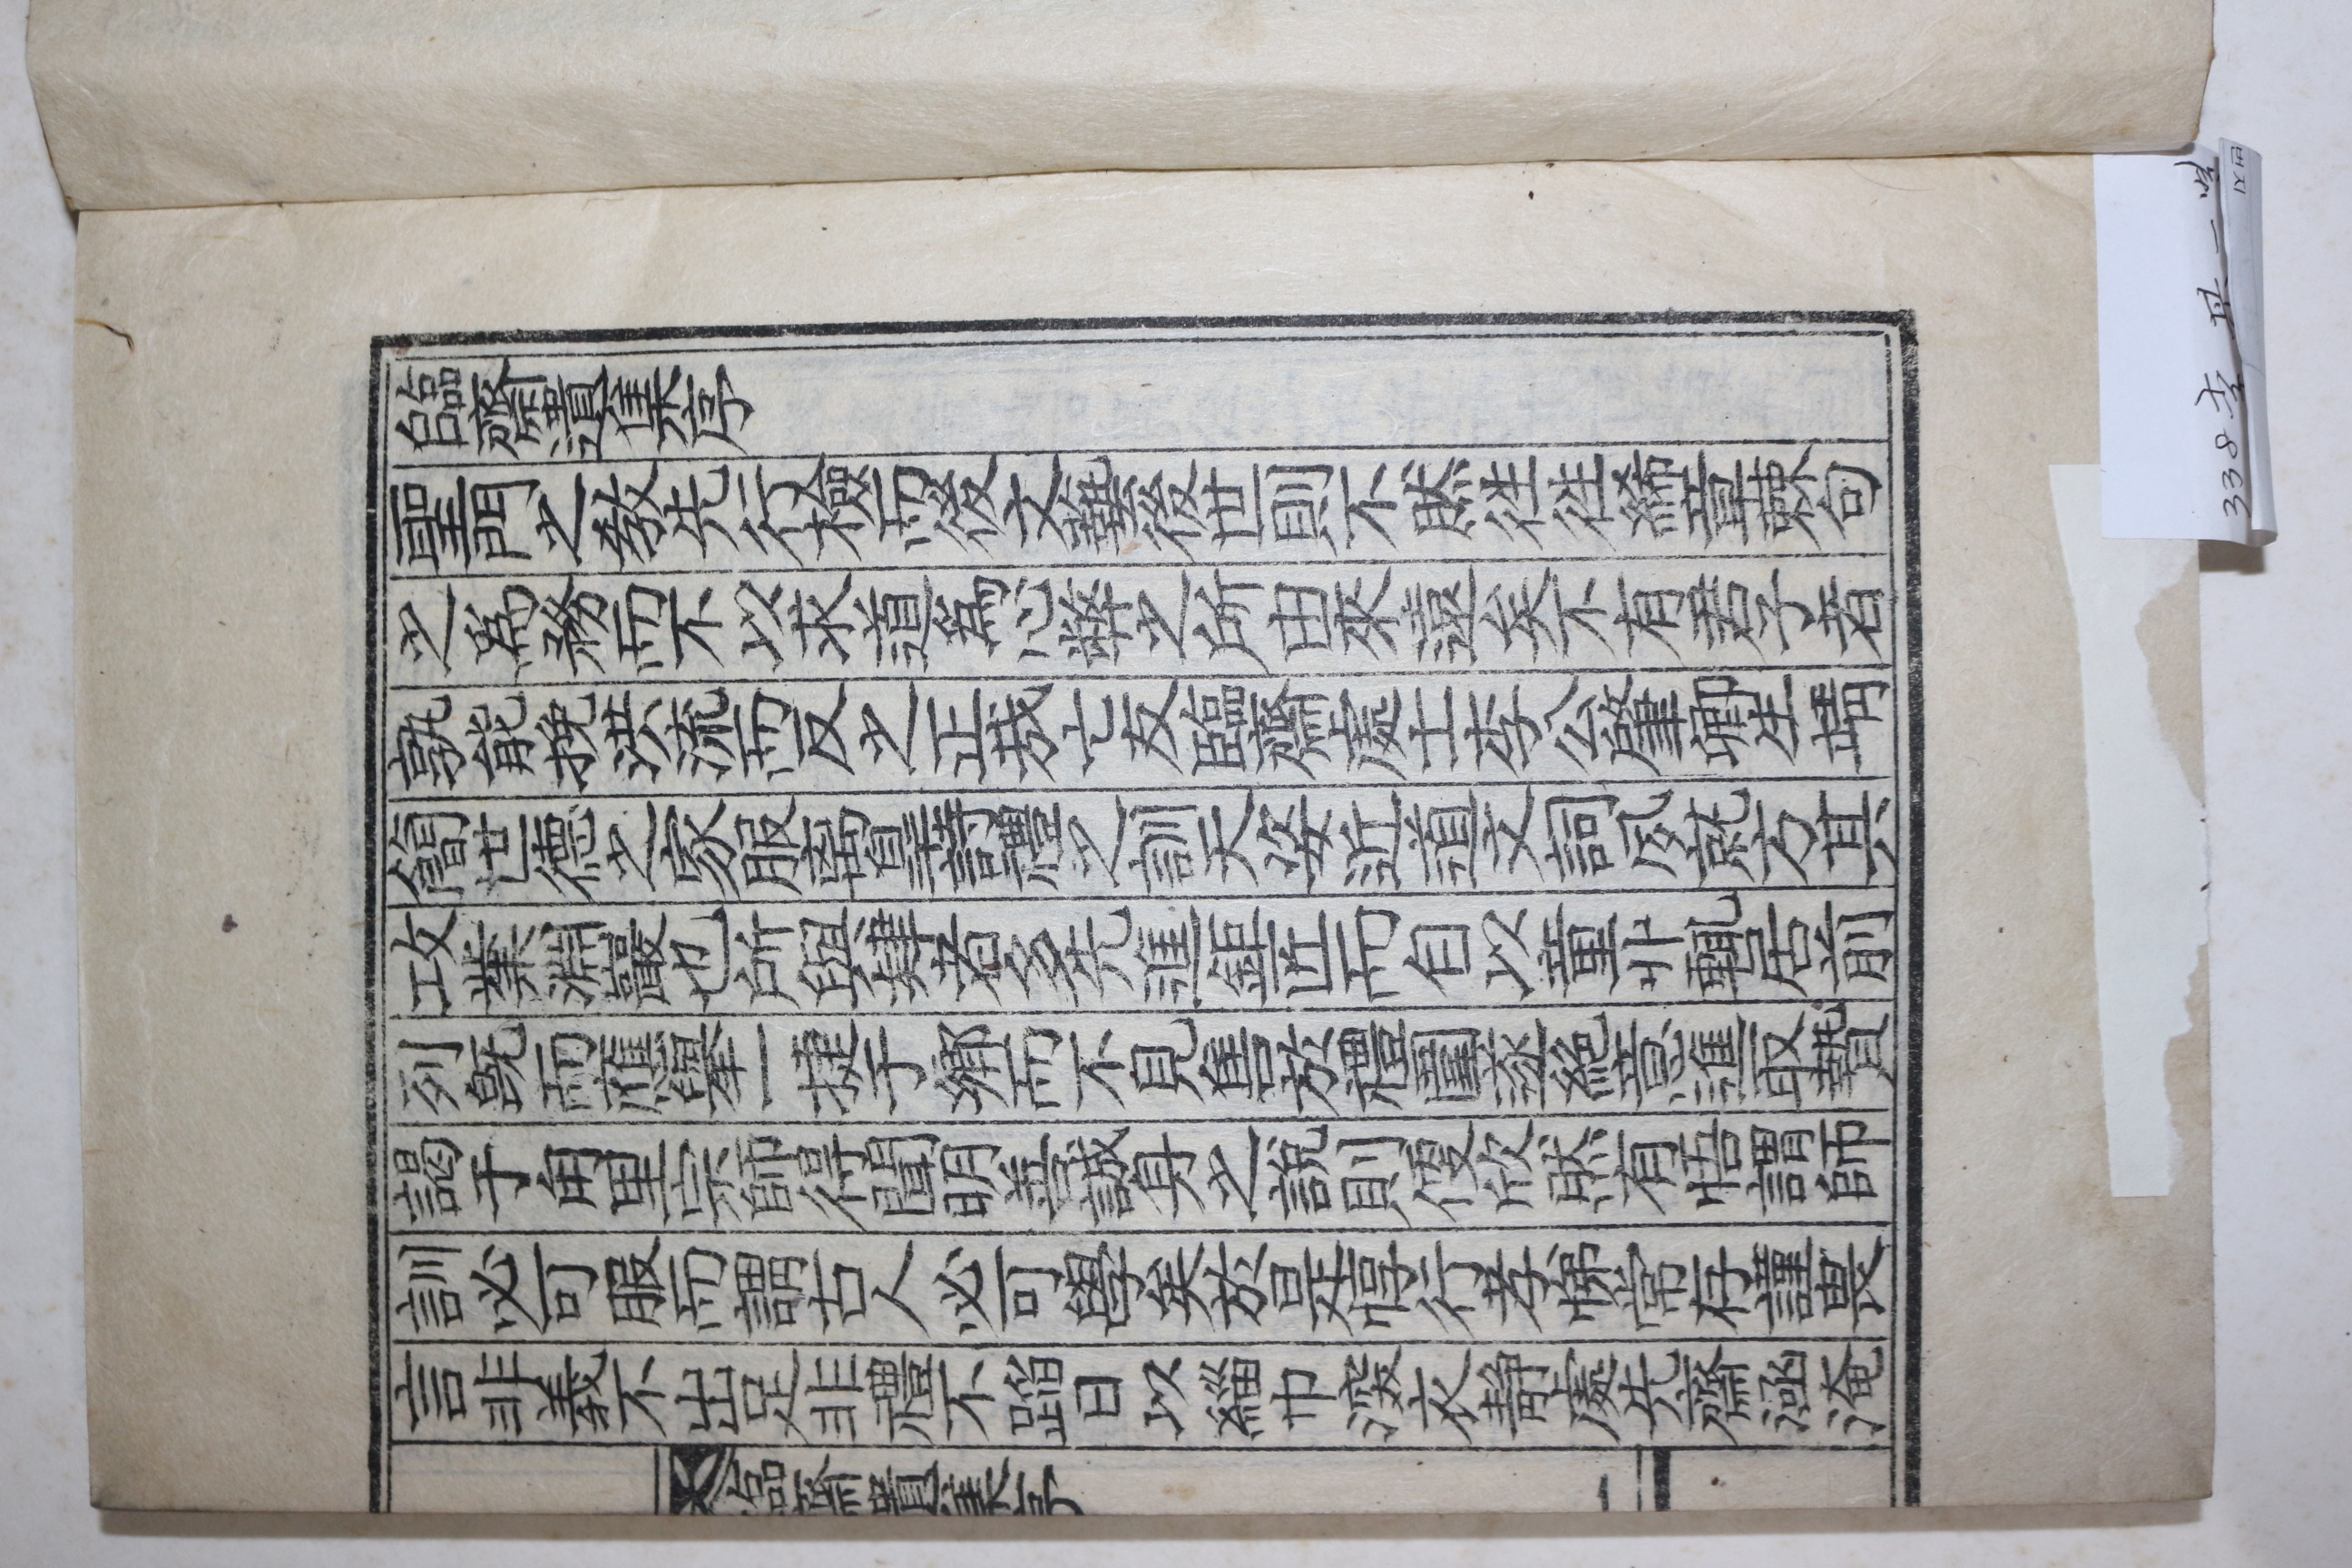 臨齋遺集序
聖門之教先行檢而後文藝後世則不然徃徃絺章棘句
之爲務而不以求道爲心弊之所由來遠矣不有君子者
孰能挽洪流而反之正哉亡友臨齋處士李公肇卿生靖
簡世德之家服离皐詩禮之訓天姿近道文詞夙就方其
攻業淵巖也所與肄者多先進鉅匠而自以童丱輒居前
列旣而應擧一捷于鄕而不見售於禮圍遂絶意進取贄
謁于甪里宗師得聞明善誠身之說則便欣然有悟謂師
訓必可服而謂古人必可學矣於是惇行孝悌常存謹畏
言非義不出足非禮不蹈日以緇巾深衣靜處先齋涵淹
臨齋遺集序
338